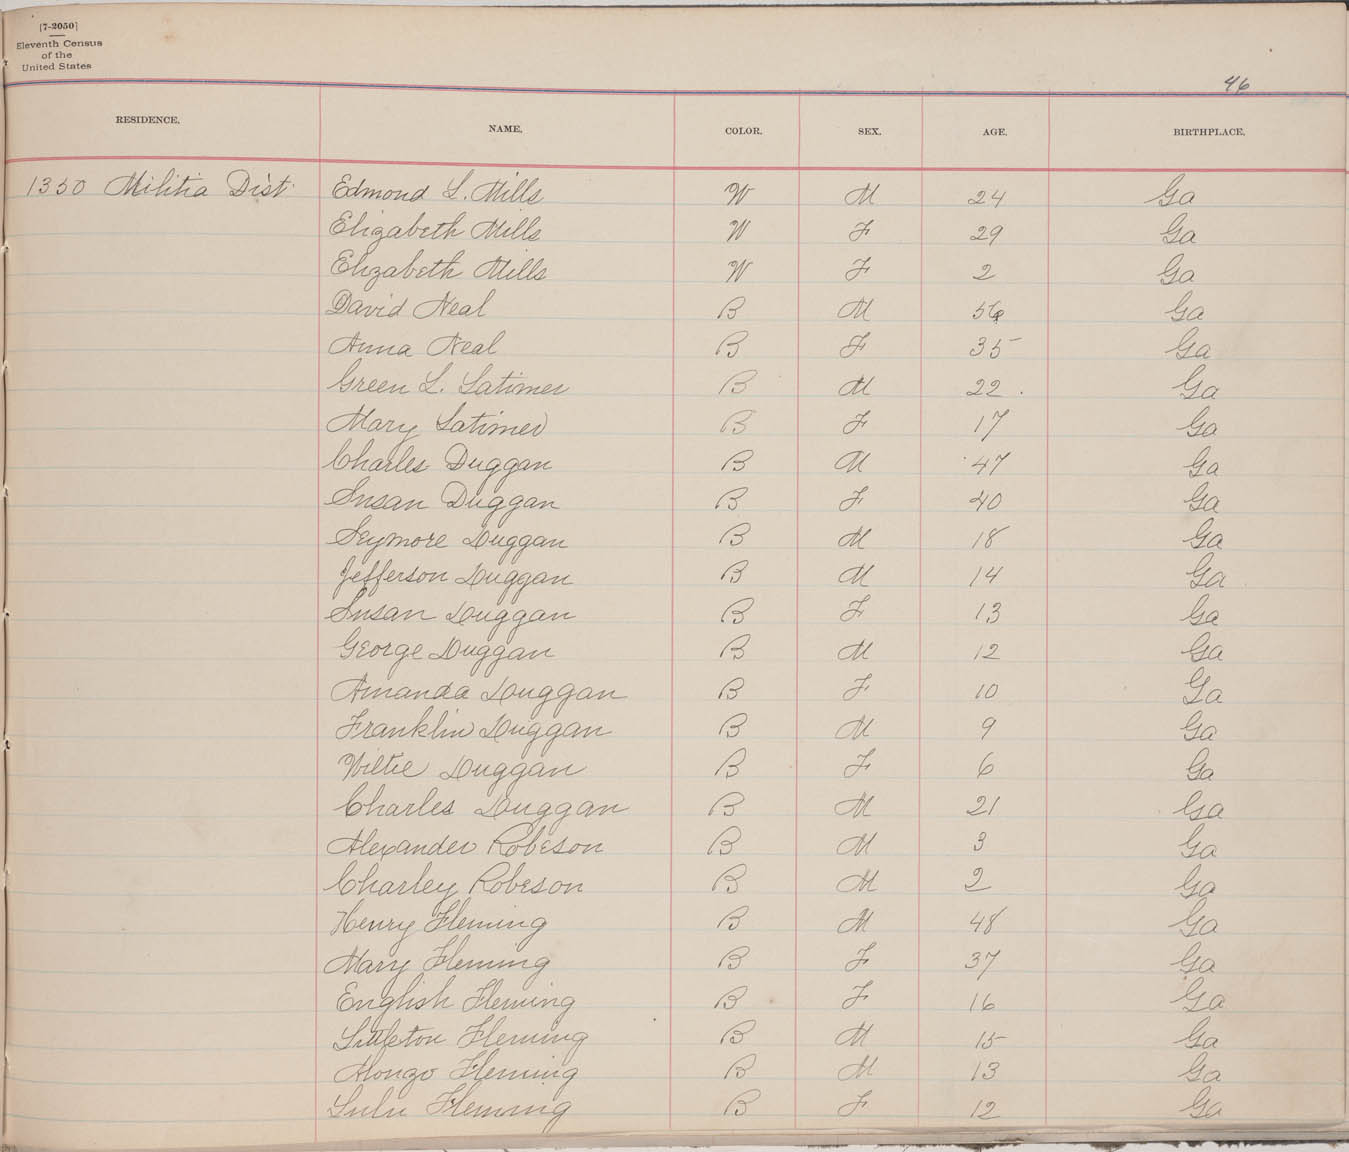 [7-2050]
Eleventh Census
of the
United States
46
RESIDENCE. NAME. COLOR. SEX. AGE. BIRTHPLACE.
1350 Militia Dist. Edmond L. Mills W M 24 Ga
Elizabeth Mills W F 29 Ga
Elizabeth Mills W F 2 Ga
David Neal B M 56 Ga
Anna Neal B F 35 Ga
Green L. Latimer B M 22 Ga
Mary Latimer B F 17 Ga
Charles Duggan B M 47 Ga
Susan Duggan B F 40 Ga
Seymore Duggan B M 18 Ga
Jefferson Duggan B M 14 Ga
Susan Duggan B F 13 Ga
George Duggan B M 12 Ga
Amanda Duggan B F 10 Ga
Franklin Duggan B M 9 Ga
Duggan B F 6 Ga
Charles Duggan B M 21 Ga
Alexander Robeson B M 3 Ga
Charley Robeson B M 2 Ga
Henry Fleming B M 48 Ga
Mary Fleming B F 37 Ga
English Fleming B F 16 Ga
Littleton Fleming B M 15 Ga
Alonzo Fleming B M 13 Ga
Lulu Fleming B F 12 Ga